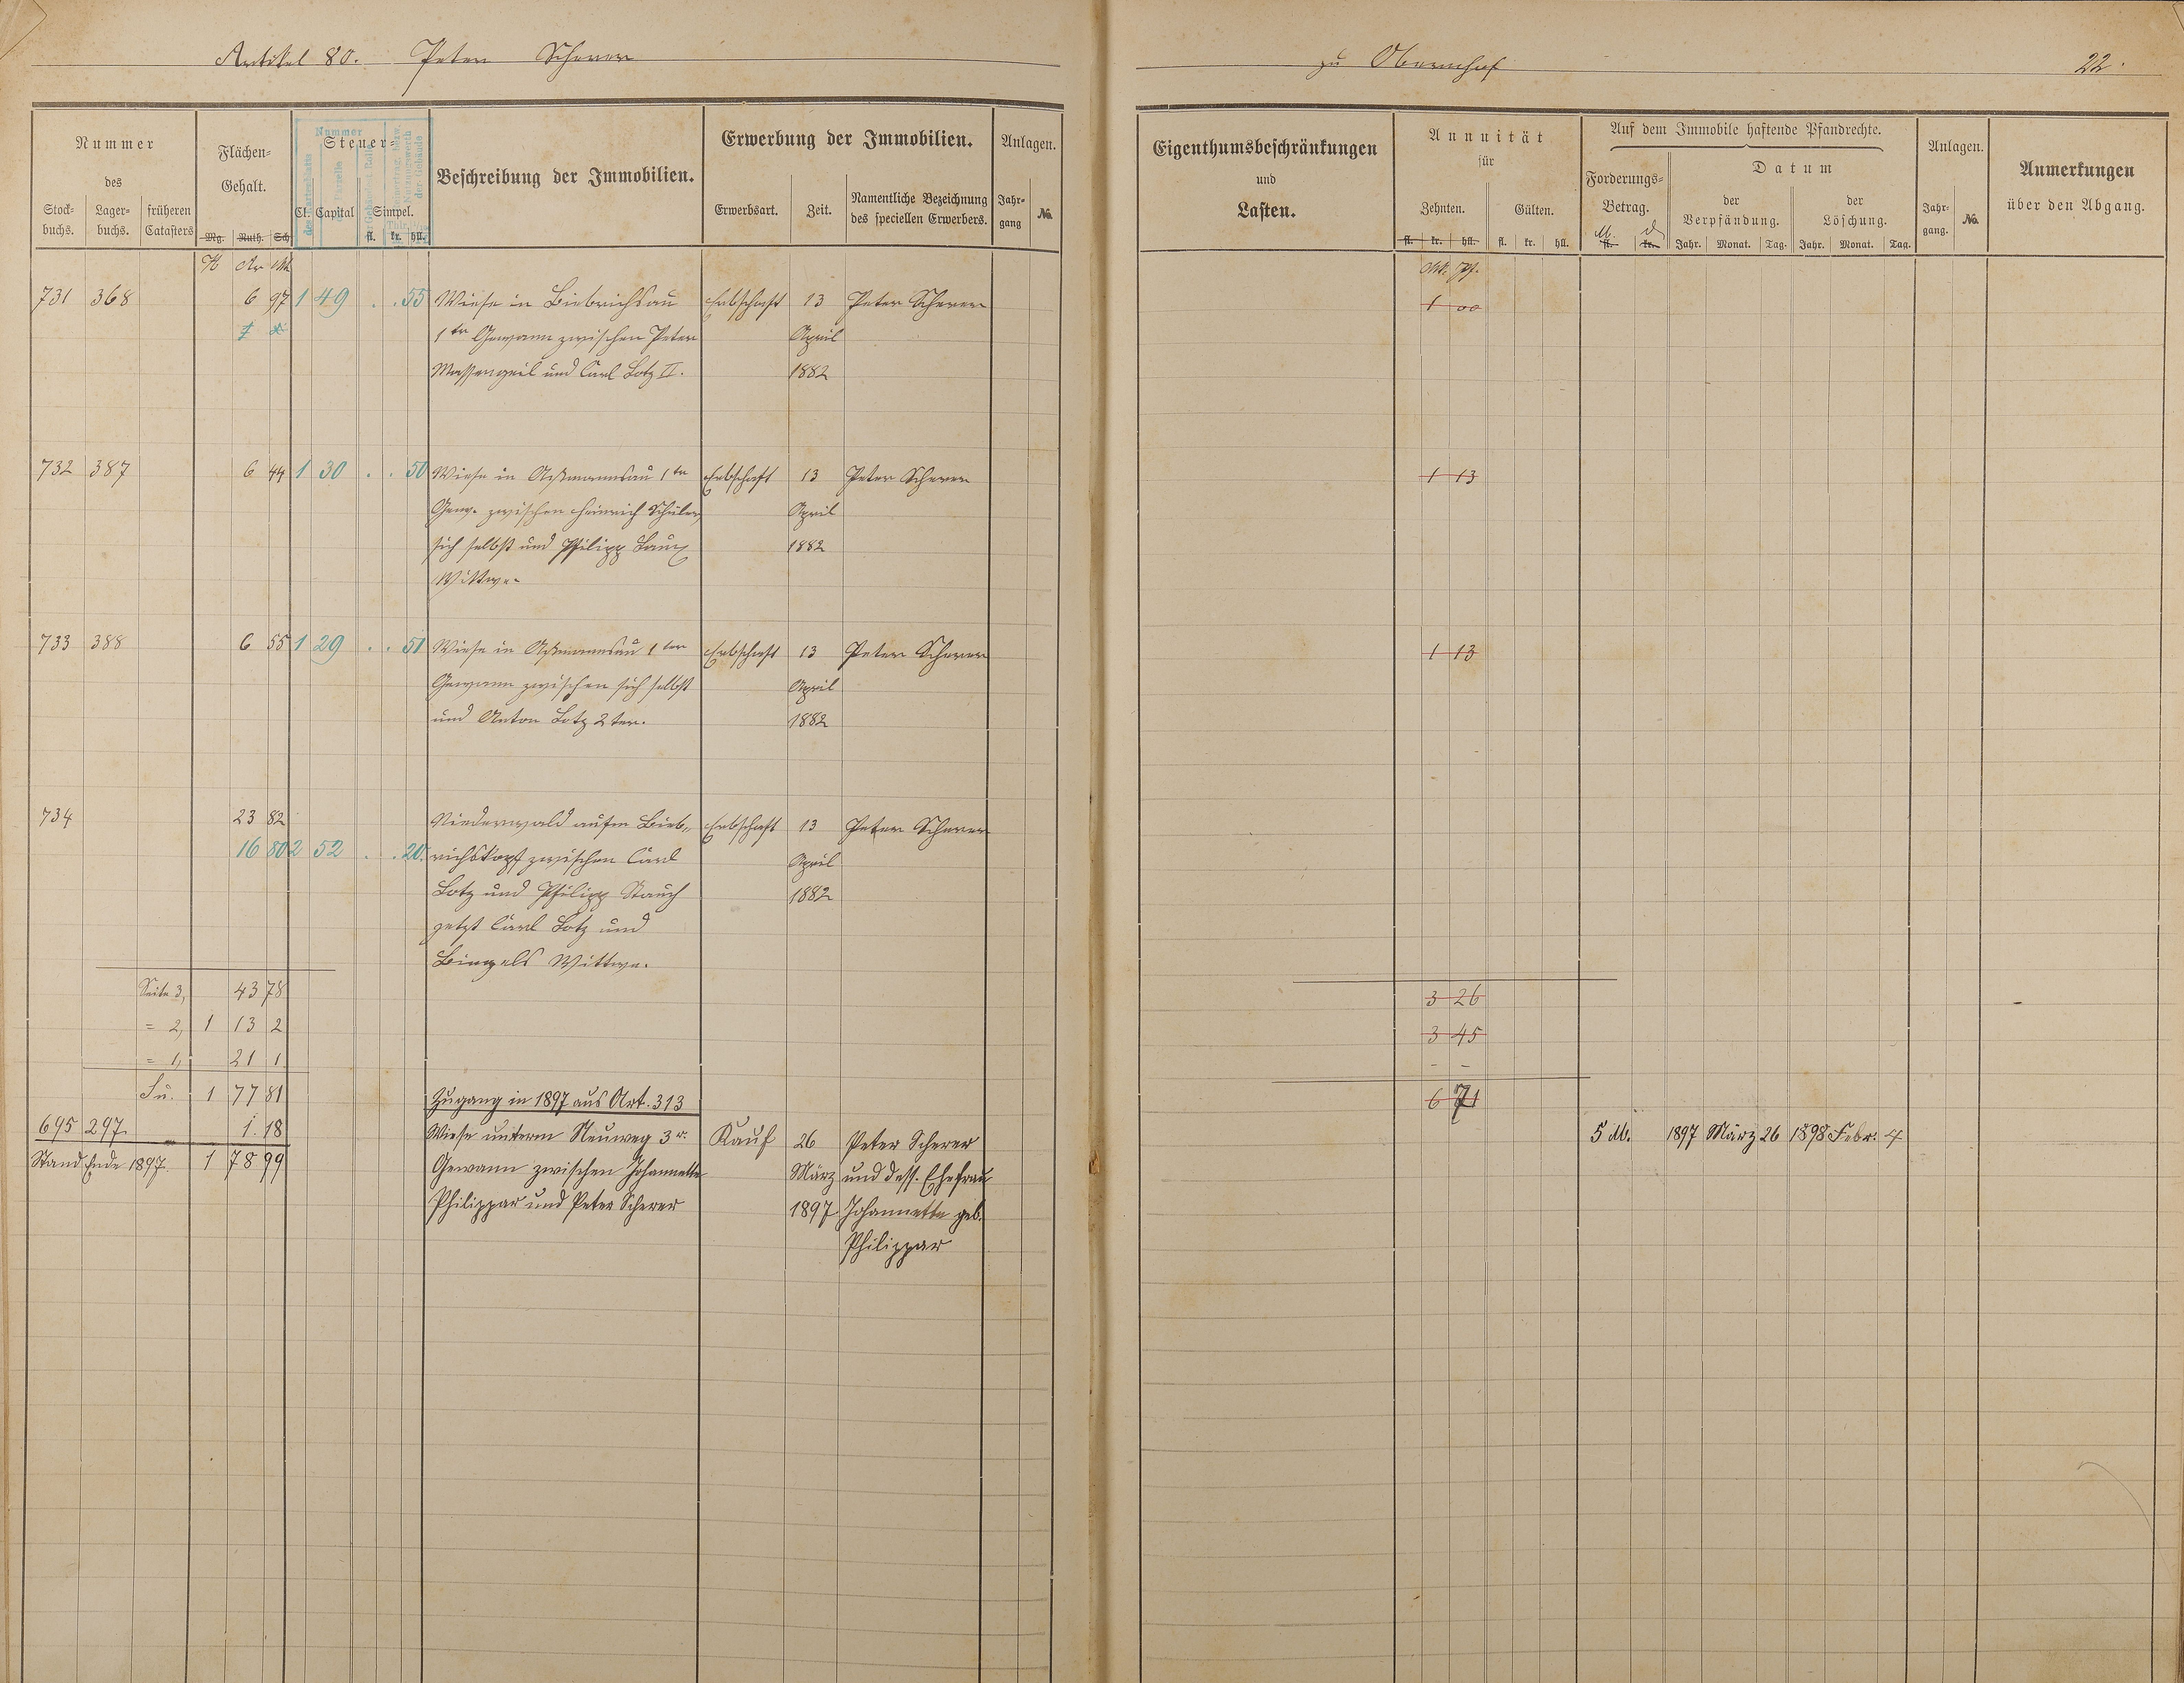 Artikel 80. Peter Scherer
zu Obernhof 22.
Nummer
des
Stock-
buchs.
Lager-
buchs.
früheren
Catasters
Flächen-
Gehalt.
Mg. Ruth. Sch
Steuer-
Cl. Capital Simpel.
fl. kr. hll.
Beschreibung der Immobilien.
Erwerbung der Immobilien.
Erwerbsart. Zeit.
Namentliche Bezeichnung
des speciellen Erwerbers.
Anlagen.
Jahr-
gang
No.
Eigenthumsbeschränkungen
und
Lasten.
Annuität
für
Zehnten. Gülten.
fl. kr. hll. fl. kr. hll.
Auf dem Immobile haftende Pfandrechte.
Forderungs-
Betrag.
M. d
fl. kr.
Datum
der
Verpfändung.
der
Löschung.
Jahr. Monat. Tag. Jahr. Monat. Tag.
Anlagen.
Jahr-
gang.
No.
Anmerkungen
über den Abgang.
H Ar Mt
Mk. Pf.
731 368 6 97 1 49 . . 55 Wiese in Biebrichsau Erbschaft 13 Peter Scherer 1 00
1ter Gewann zwischen Peter April
Massengeil und Carl Lotz II. 1882
732 387 6 44 1 30 . . 50 Wiese in Aßmannsau 1ter Erbschaft 13 Peter Scherer 1 13
Gew. zwischen Heinrich Schuler, April
sich selbst und Philipp Laux 1882
Wittwe.
733 388 6 55 1 29 . . 51 Wiese in Aßmannsau 1ter Erbschaft 13 Peter Scherer 1 13
Gewann zwischen sich selbst April
und Anton Lotz 2ter. 1882
734 23 82 Niederwald auf'm Bieb- Erbschaft 13 Peter Scherer
16 80 2 52 . . 20. richskopf zwischen Carl April
Lotz und Philipp Stauch 1882
jetzt Carl Lotz und
Bingels Wittwe.
Seite 3, 43 78 3 26
= 2, 1 13 2 3 45
= 1, 21 1 - -
Su. 1 77 81 6 71
Zugang in 1897 aus Art. 313
695 297. 1. 18 Wiese unterm Neuweg 3r. Kauf 26 Peter Scherer 5 M. 1897 März 26 1898 Febr. 4
Stand Ende 1897. 1 78 99 Gewann zwischen Johannette März und dess. Ehefrau
Philippar und Peter Scherer 1897 Johannette geb.
Philippar